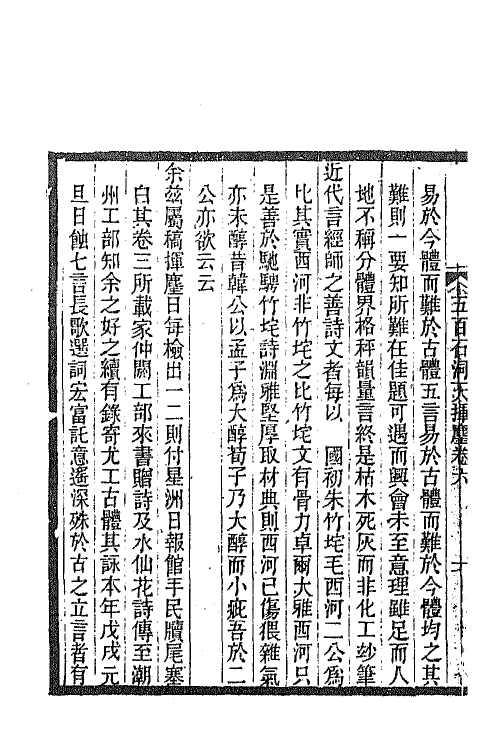 五百石洞天揮麈卷六
易於今體而難於古體五言易於古體而難於今體均之其
難則一要知所難在佳題可遇而興會未至意理雖足而人
地不稱分體界格秤韻量言終是枯木死灰而非化工妙筆
近代言經師之善詩文者每以　國初朱竹垞毛西河二公爲
比其實西河非竹垞之比竹垞文有骨力卓爾大雅西河只
是善於馳騁竹垞詩淵雅堅厚取材典則西河已傷猥雜氣
亦未醇昔韓公以孟子爲大醇荀子乃大醇而小疵吾於二
公亦欲云云
余茲屬稿揮麈日每檢出一二則付星洲日報館手民牘尾塞
白其卷三所載家仲閼工部來書贈詩及水仙花詩傳至潮
州工部知余之好之續有錄寄尤工古體其詠本年戊戌元
旦日蝕七言長歌選詞宏富託意遙深殊於古之立言者有